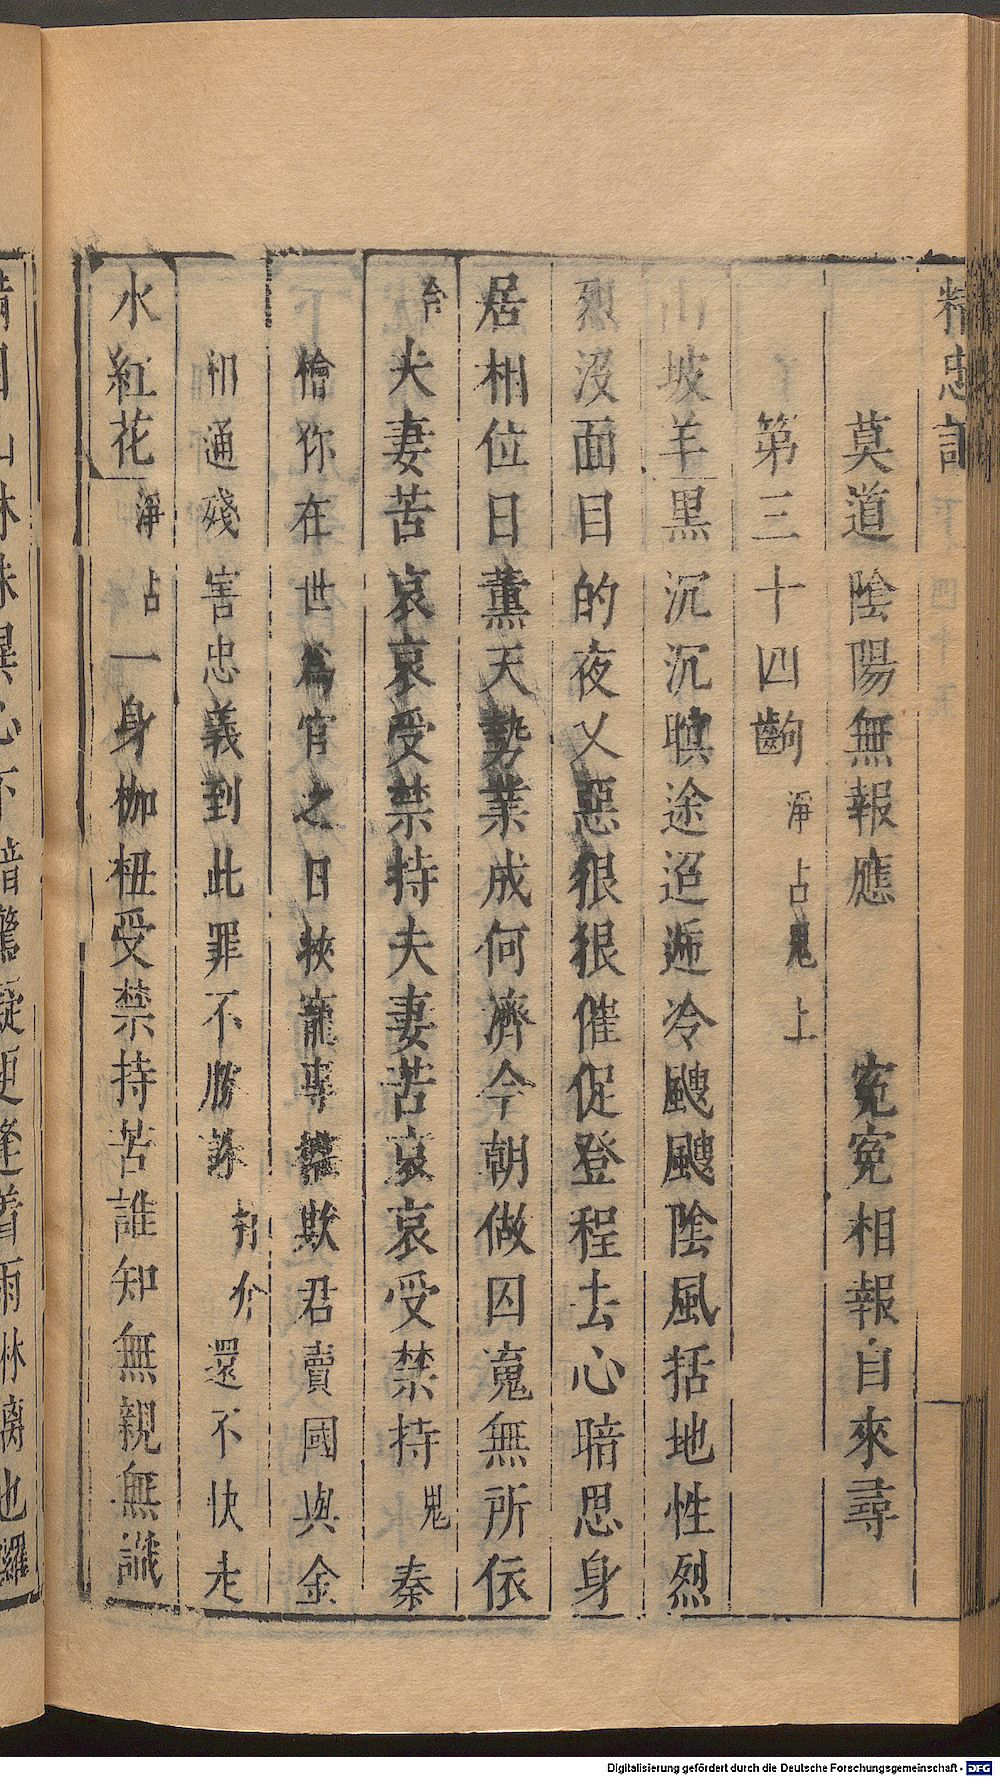 精忠記
莫道陰陽無報應　寃寃相報自來尋
第三十四齣 淨占鬼上
山坡羊黑沉沉瞑途迢遞冷颼颼陰風括地性烈
烈没面目的夜乂惡狠狠催促登程去心暗思身
居相位日薰天勢業成何濟今朝做囚䰟無所依
合夫妻苦哀哀受禁持夫妻苦哀哀受禁持 鬼 秦
檜你在世爲官之日挾寵專權欺君賣國與金
相通殘害忠義到此罪不勝誅 打介 還不快走
水紅花 淨占 一身枷杻受禁持苦誰知無親無識
Digitalisierung gefördert durch die Deutsche Forschungsgemeinschaft - DFG